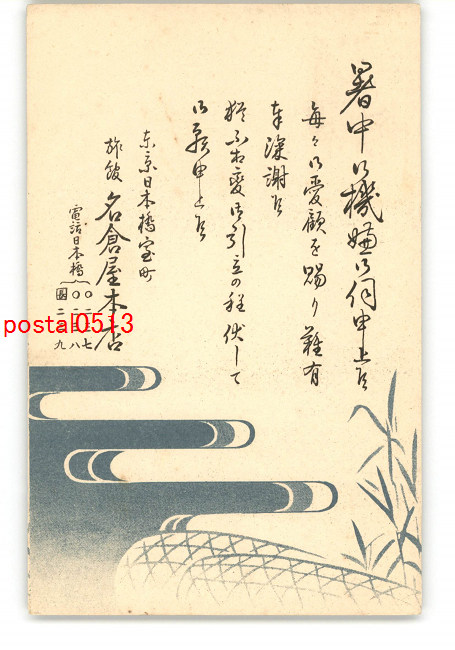 暑中御機嫌御伺申上候
毎々御愛顧を賜り難有
奉深謝候
猶不相変御引立の程伏して
御願申上候
東京日本橋室町
旅舘 名倉屋本店
電話日本橋
postal0513